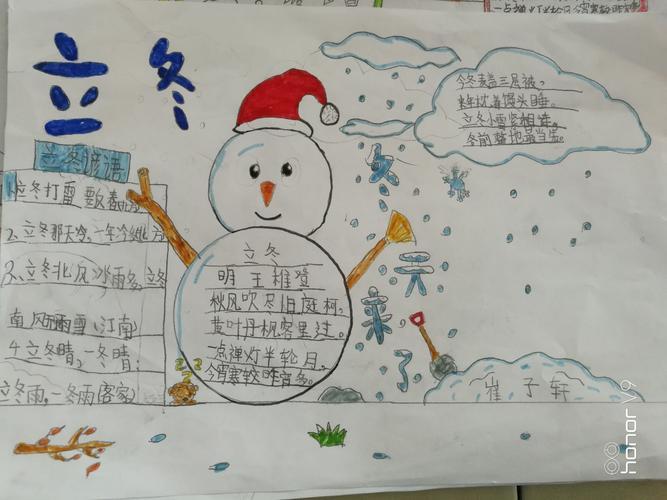 一点禅灯半轮月,今宵寒较昨宵多。
立冬
今冬麦盖三层被,
来年枕着馒头睡。
立冬小雪紧相连,
冬前整地最当先。
立冬谚语
1、立冬打雷要
2、立冬那天冷,一年冷
3、立冬北风冰雨多,立冬
南风雨雪(江南)
4、立冬晴,一冬晴;
立冬雨,一冬雨(客家)
立冬
明 王稚登
秋风吹尽旧庭柯,
黄叶丹枫客里过。
一点禅灯半轮月,
今宵寒较昨宵多。
冬天来了
崔子轩
honor y9